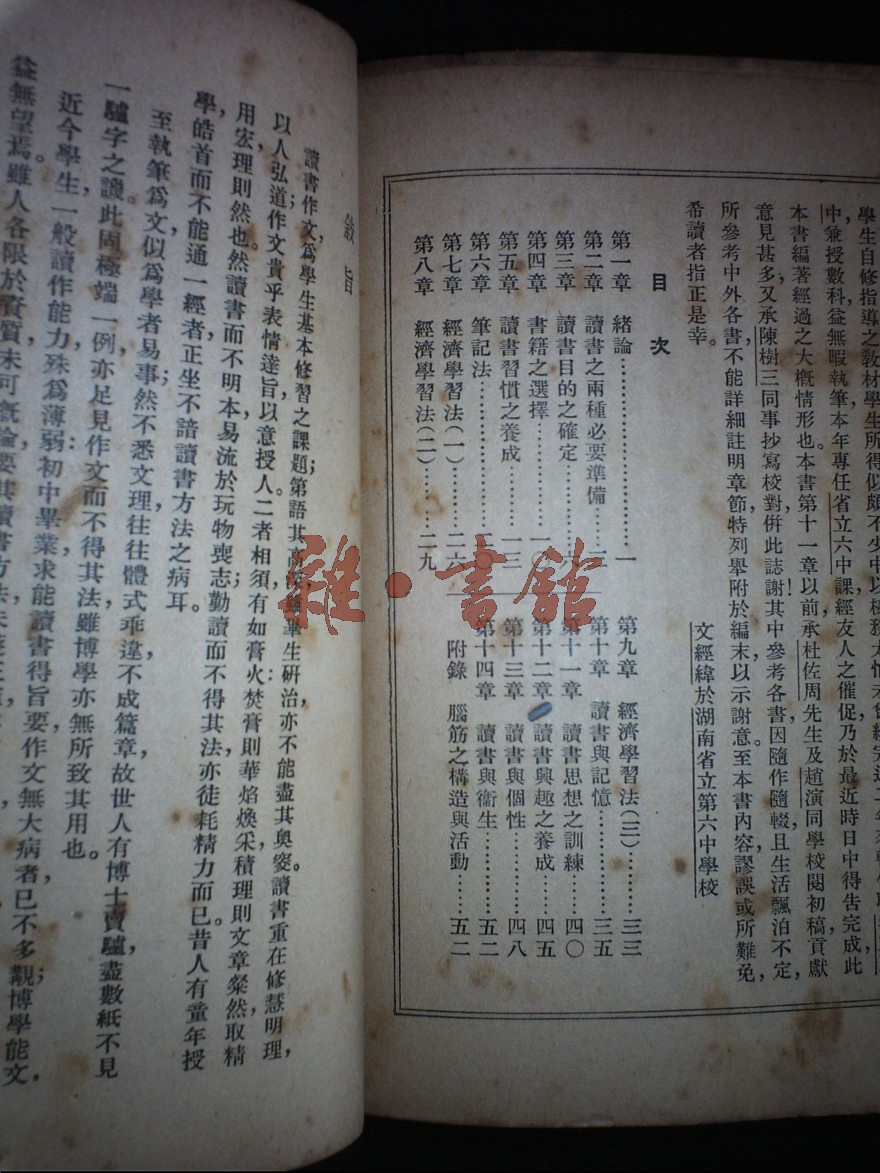 學生自修指導之敎材學生所得似頗不少
中,兼授數科,益無暇執筆本年專任省立六中課經友人之催促乃於最近時日中得告完成此
本書編著經過之大槪情形也。本書第十一章以前承杜佐周先生及趙演同學校閱初稿貢獻
意見甚多又承陳樹三同事抄寫校對倂此誌謝其中參考各書因隨作隨輟且生活飄泊不定,
所參考中外各書不能詳細註明章節特列舉附於編末以示謝意至本書內容謬誤或所難免,
希讀者指正是幸。
文經緯於湖南省立第六中學校
目次
第一章 緒論…………一
第二章 讀書之兩種必要準備……
第三章 讀書目的之確定……
第四章 書籍之選擇…………
第五章 讀書習慣之養成……一三
第六章 筆記法…………二〇
第七章 經濟學習法(一)……二六
第八章 經濟學習法(二)……二九
第九章 經濟學習法(三)……三三
第十章 讀書與記憶…………三五
第十一章 讀書思想之訓練……四〇
第十二章 讀書興趣之養成……四五
第十三章 讀書與個性…………四八
第十四章 讀書與衞生…………五二
附錄 腦筋之構造與活動……五二
敘旨
讀書作文,爲學生基本修習之課題;第語其高深,畢生硏治,亦不能盡其奧窔。讀書重在修慧明理,
以人弘道;作文貴乎表情達旨,以意授人。二者相須,有如膏火:焚膏則華焰煥采,積理則文章粲然,取精
用宏,理則然也。然讀書而不明本,易流於玩物喪志;勤讀而不得其法,亦徒耗精力而已。昔人有童年授
學,皓首而不能通一經者,正坐不諳讀書方法之病耳。
至執筆爲文,似爲學者易事,然不悉文理,往往體式乖違,不成篇章,故世人有博士賣驢,盡數紙不見
一驢字之譏,此固極端一例,亦足見作文而不得其法,雖博學亦無所致其用也。
近今學生一般讀作能力,殊爲薄弱:初中畢業,求能讀書得旨要,作文無大病者,已不多覯;博學能文,
益無望焉。雖人各限於資質,未可槪論,要其讀書方法
雜·書館